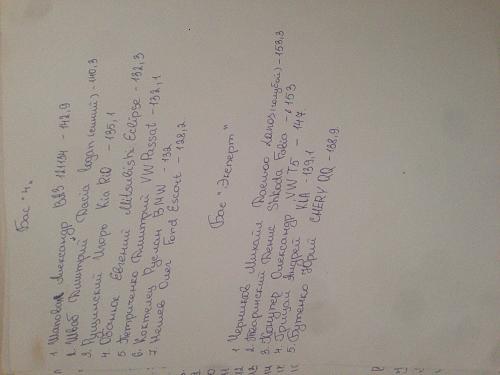 Бас "4"
1 Шаповал Александр ВАЗ 121134 - 142,9
2. Швab Дмитрий Dacia Logan (синий) - 140,3
3. Рущинский Игорь Kia Rio - 135,1
4. Обаниak Евгений Mitsubishi Eclipse - 132,3
5 Петриченко Дмитрий VW Passat - 132,1
6. Коктелец Руслан BMW - 132
7 Нешев Олег Ford Escort - 128,2
Бас "Эксперт"
1 Черников Михайл Daewoo Lanos (голубой) - 153,3
2. Тваринский Денис Shkoda Fabia - 153
3. Александр VW T5 - 147
4. Грицай Андрей KIA - 139,1
5. Бутенко Юрий CHERY QQ - 138,9